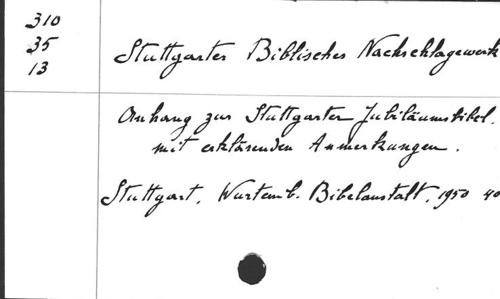 310
35
13
Stuttgarter Biblisches Nachschlagewerk
Anhang zur Stuttgarter Jubiläumsbibel.
mit erklärenden Anmerkungen.
Stuttgart, Württemb. Bibelanstalt, 1950 40